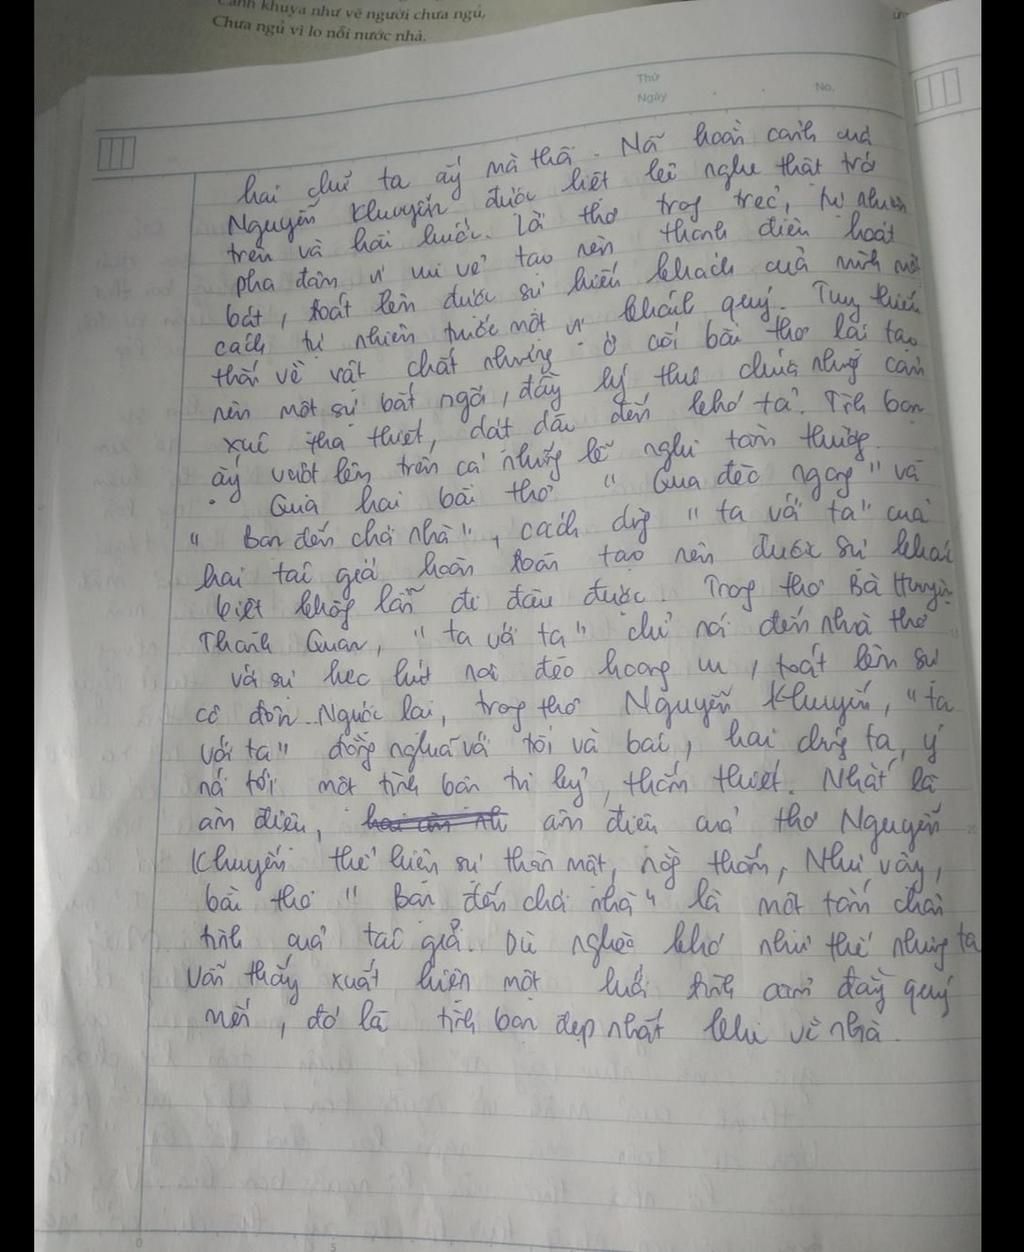 Cảnh khuya như vẽ người chưa ngủ,
Chưa ngủ vì lo nỗi nước nhà.
Thứ
Ngày
No.
hai chữ ta ấy mà thôi. Nỗi hoàn cảnh của
Nguyễn Khuyến được liệt kê nghe thật trớ
trêu và hài hước. Lời thơ trong trẻo, tự nhiên
pha đậm vị vui vẻ tạo nên thanh điệu hoạt
bát, toát lên được sự hiếu khách của mình một
cách tự nhiên trước một vị khách quý. Tuy thiếu
thốn về vật chất nhưng ở cối bài thơ lại tạo
nên một sự bất ngờ, đầy lý thú chứa những cảm
xúc tha thiết, dạt dào đến khó tả. Tình bạn
ấy vượt lên trên cả những lễ nghi tầm thường.
Qua hai bài thơ " Qua đèo ngang" và
" Bạn đến chơi nhà", cách dùng " ta với ta" của
hai tác giả hoàn toàn tạo nên được sự khác
biệt không lẫn đi đâu được. Trong thơ Bà Huyện
Thanh Quan, " ta với ta" chỉ nói đến nhà thơ
và sự heo hút nơi đèo hoang vu, toát lên sự
cô đơn. Ngược lại, trong thơ Nguyễn Khuyến, "ta
với ta" đồng nghĩa với tôi và bác, hai chúng ta, ý
nói tới một tình bạn tri kỷ, thắm thiết. Nhất là
âm điệu, âm điệu của thơ Nguyễn
Khuyến thể hiện sự thân mật, nồng thắm, Như vậy,
bài thơ " Bạn đến chơi nhà" là một tấm chân
tình của tác giả. Dù nghèo khó như thế nhưng ta
vẫn thấy xuất hiện một tình cảm đầy quý
mến, đó là tình bạn đẹp nhất khi về nhà.